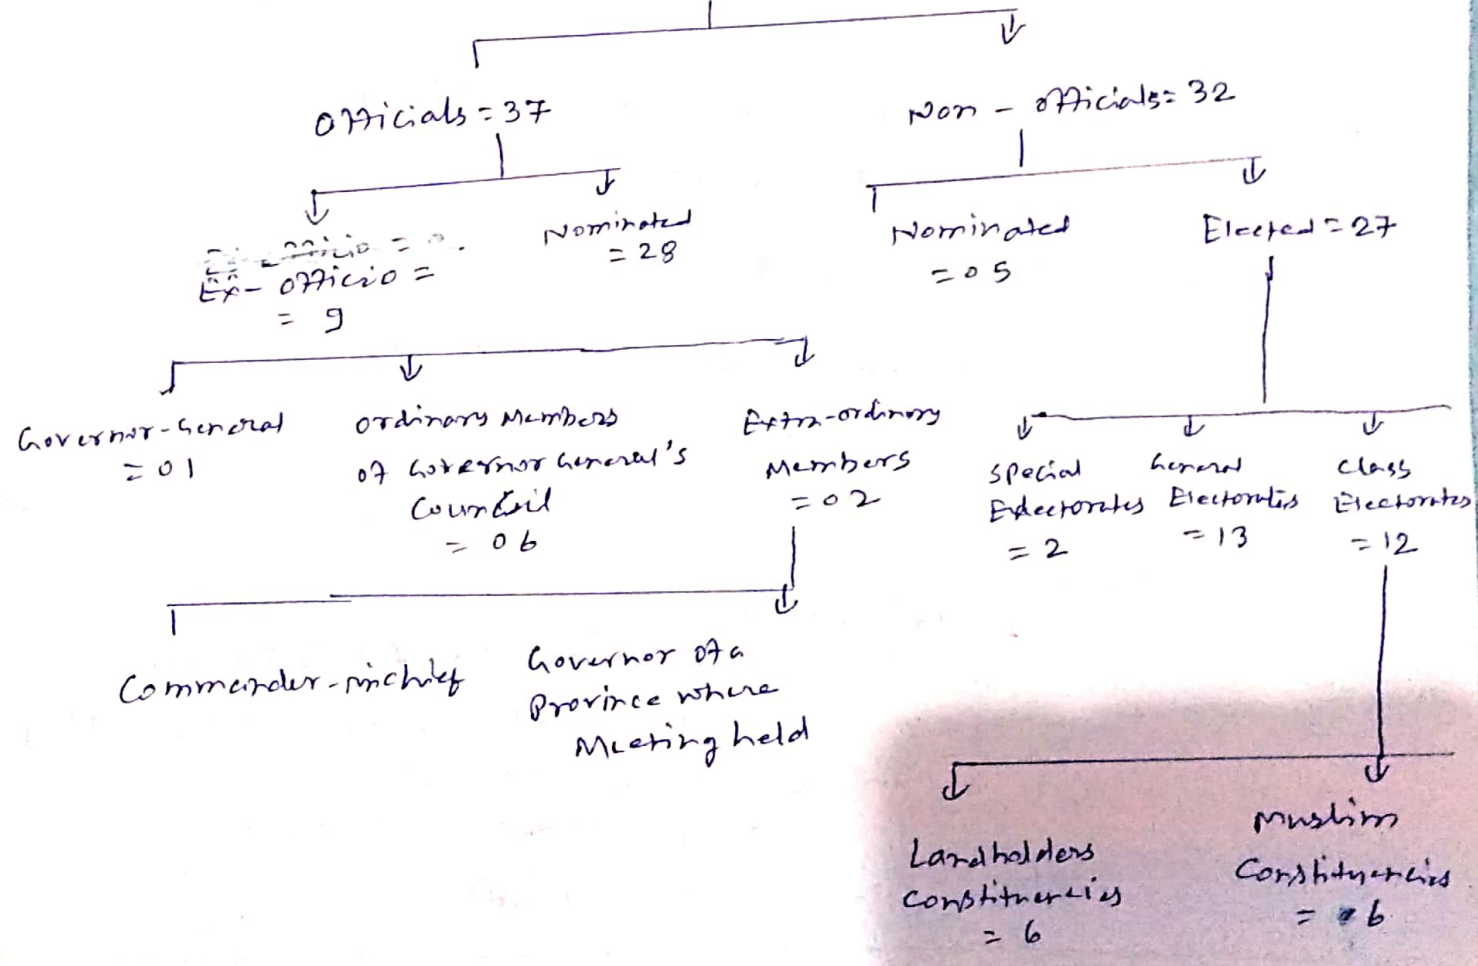 Officials = 37
Non - officials = 32
Ex - officio =
= 9
Nominated
= 28
Nominated
= 05
Elected = 27
Governor-General
= 01
ordinary Members
of Governor General's
Council
= 06
Extra-ordinary
Members
= 02
Special
Electorates
= 2
General
Electorates
= 13
Class
Electorates
= 12
Commander-inchief
Governor of a
Province where
Meeting held
Landholders
Constituencies
= 6
Muslim
Constituencies
= 6